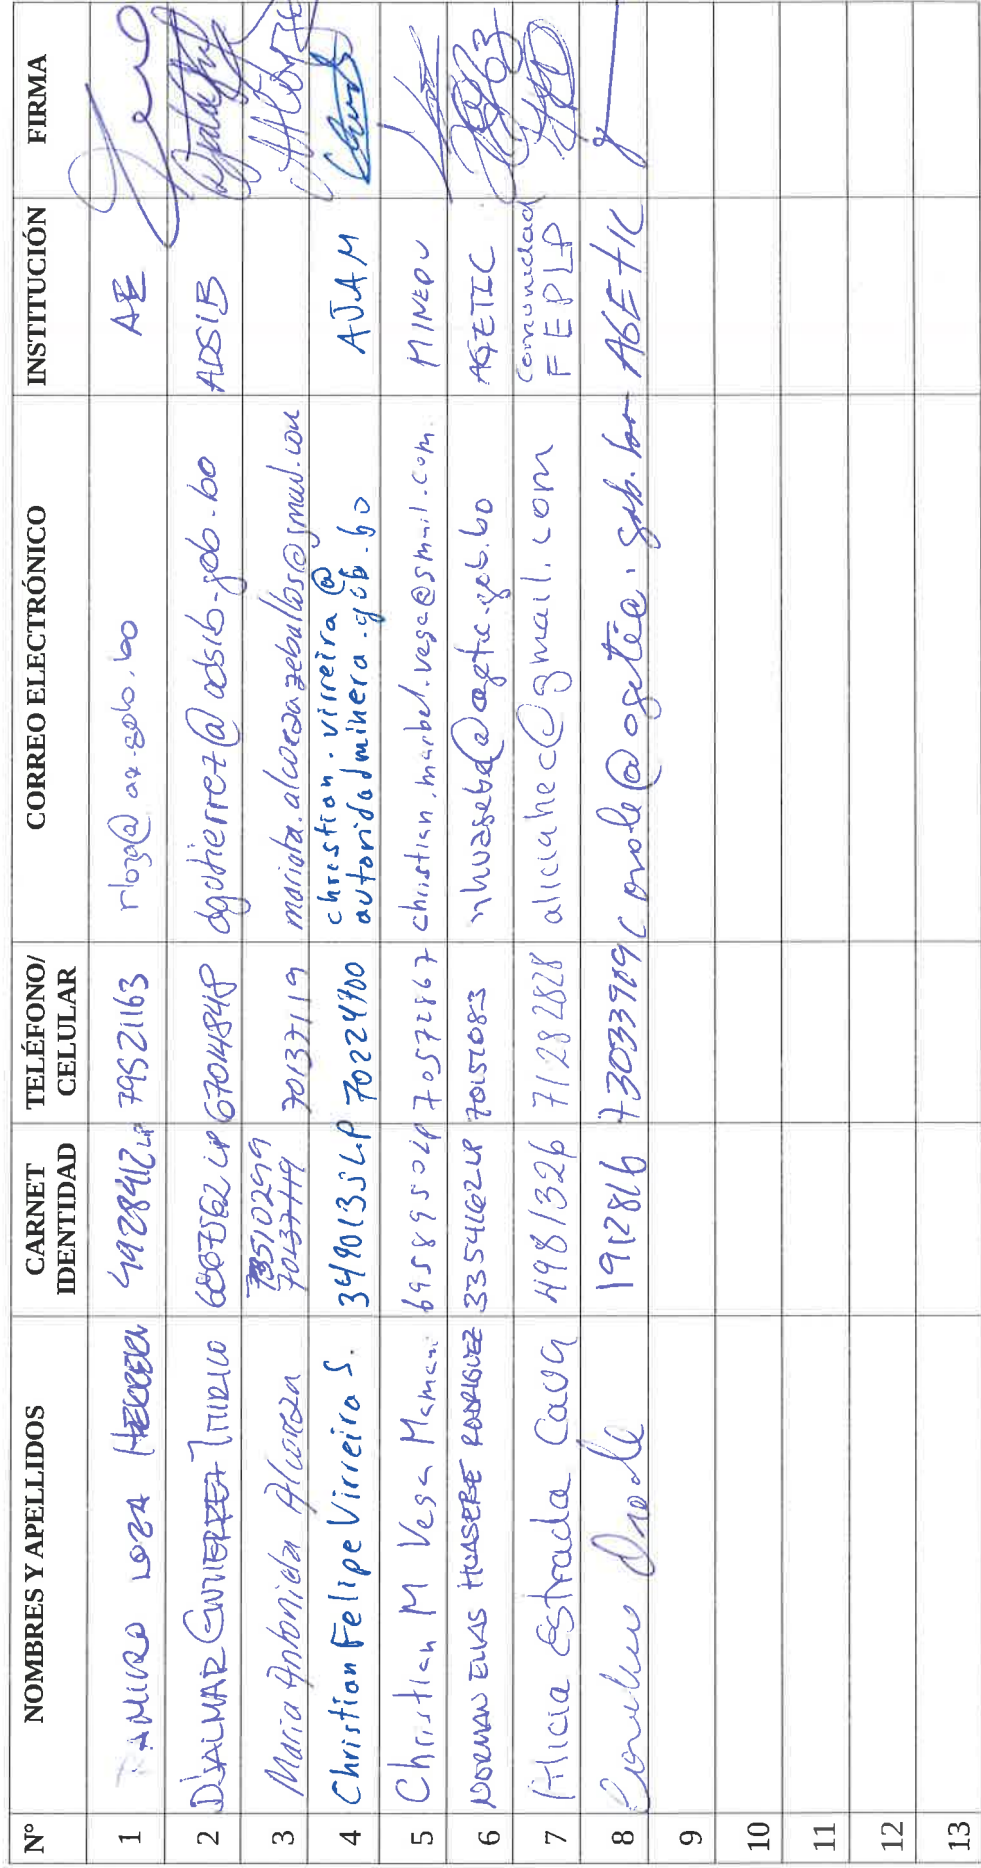 N° NOMBRES Y APELLIDOS CARNET IDENTIDAD TELÉFONO/ CELULAR CORREO ELECTRÓNICO INSTITUCIÓN FIRMA
1 RAMIRO LOZA HERRERA 4928412 LP 79521163 rloza@ae.gob.bo AE
2 DJALMAR GUTIERREZ 67014848 dgutierrez@adsib.gob.bo ADSIB
3 Maria Antonieta Alcoreza 73510299 70137119 70137119
4 Christian Felipe Virreira S. 3490135 LP 70224700 christian.virreira@
autoridadminera.gob.bo AJAM
5 Christian M Vega Mamani 6958950 LP 70572867 christian.marbel.vega@gmail.com. MINEDU
6 NORMAN ELIAS HUASEBE RODRIGUEZ 3354162 LP 70151083 nhuasebe@agetic.gob.bo AGETIC
7 Alicia Estrada Cava 4981326 71282828 aliciahec@gmail.com Comunidad
FEPLP
8 1912816 73033909 AGETIC
9
10
11
12
13